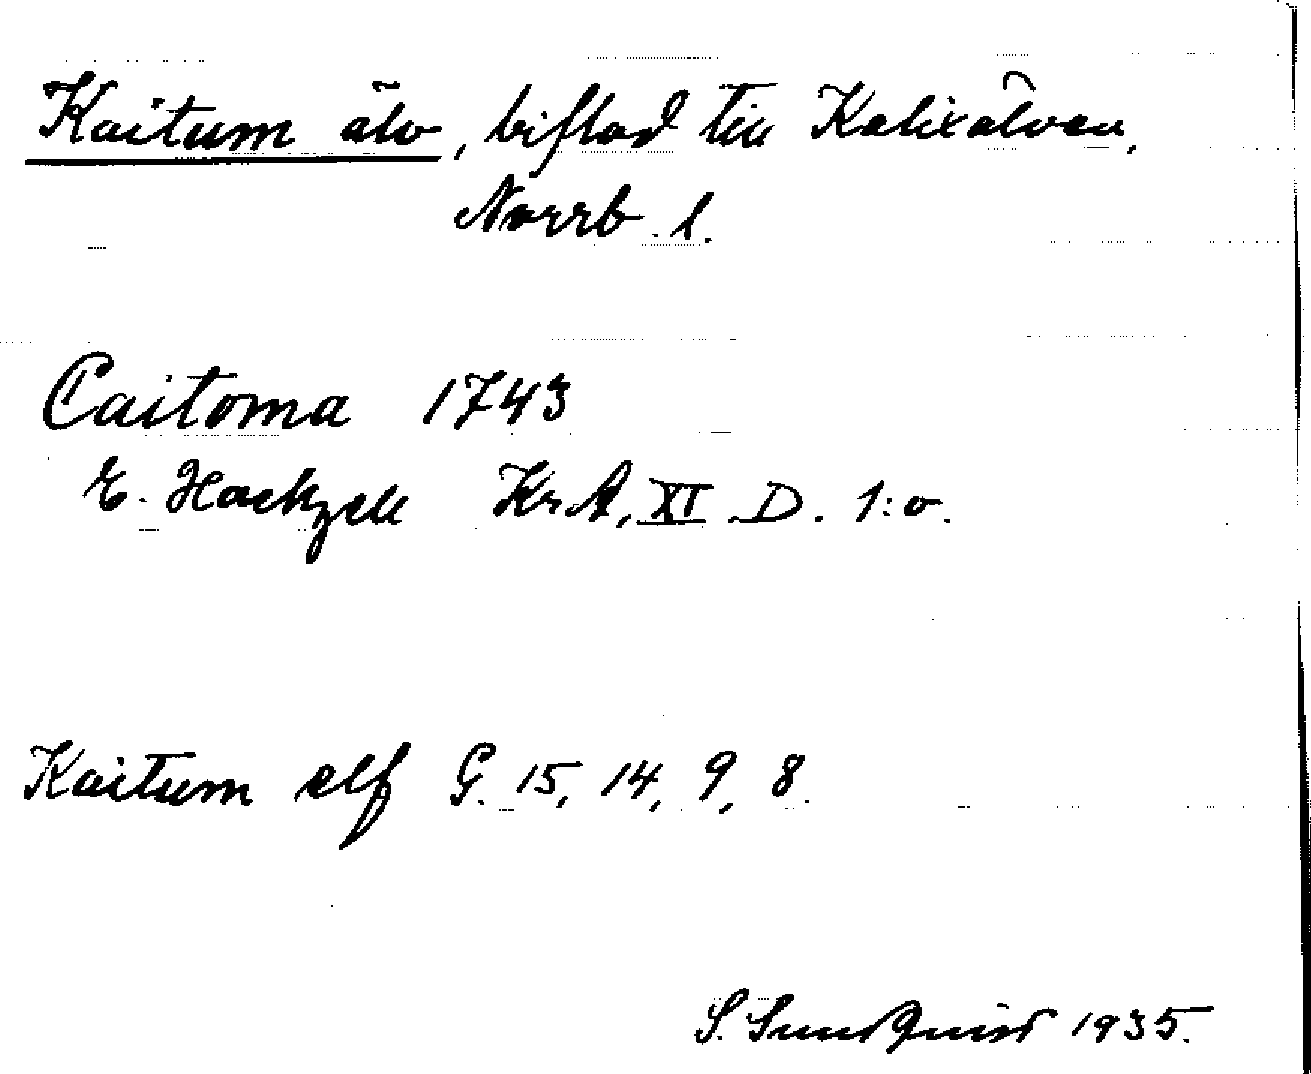 Kaitum älv, biflod till Kalixälven,
Norrb. l.
Caitoma 1743
E. Hackzell KrA, XI. D. 1:o.
Kaitum elf G. 15, 14, 9, 8.
S. Sundquist 1935.